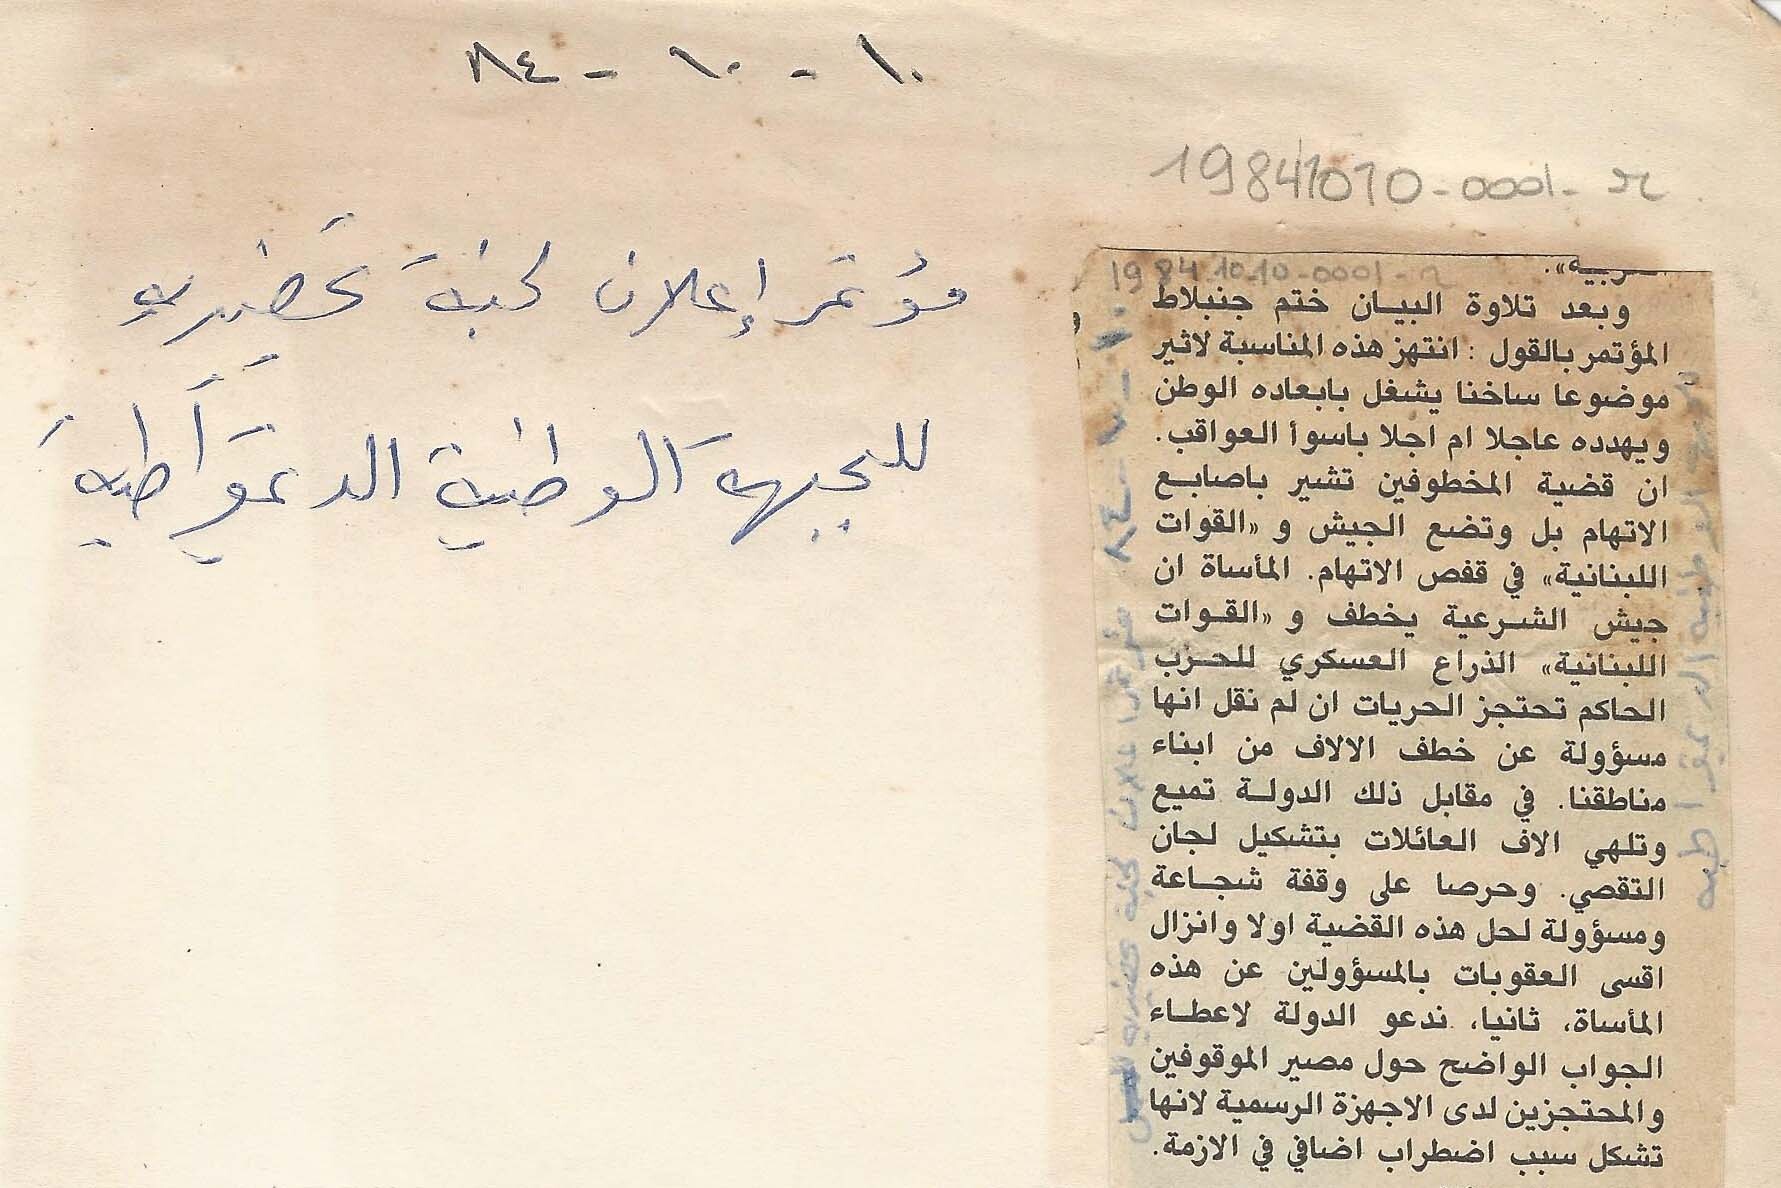 ١٠ - ١٠ - ٨٤
19841010-0001-
مؤتمر إعلان لجنة تحضيرية
للجبهة الوطنية الديمقراطية
19841010-0001-
وبعد تلاوة البيان ختم جنبلاط
المؤتمر بالقول : انتهز هذه المناسبة لاثير
موضوعا ساخنا يشغل بابعاده الوطن
ويهدده عاجلا ام اجلا باسوأ العواقب.
ان قضية المخطوفين تشير باصابع
الاتهام بل وتضع الجيش و «القوات
اللبنانية» في قفص الاتهام. المأساة ان
جيش الشرعية يخطف و «القوات
اللبنانية» الذراع العسكري للحزب
الحاكم تحتجز الحريات ان لم نقل انها
مسؤولة عن خطف الالاف من ابناء
مناطقنا. في مقابل ذلك الدولة تميع
وتلهي الاف العائلات بتشكيل لجان
التقصي. وحرصا على وقفة شجاعة
ومسؤولة لحل هذه القضية اولا وانزال
اقسى العقوبات بالمسؤولين عن هذه
المأساة، ثانيا، ندعو الدولة لاعطاء
الجواب الواضح حول مصير الموقوفين
والمحتجزين لدى الاجهزة الرسمية لانها
تشكل سبب اضطراب اضافي في الازمة.